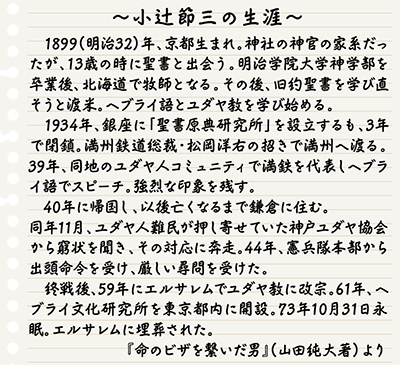 ～小辻節三の生涯～
1899(明治32)年、京都生まれ。神社の神官の家系だっ
たが、13歳の時に聖書と出会う。明治学院大学神学部を
卒業後、北海道で牧師となる。その後、旧約聖書を学び直
そうと渡米。ヘブライ語とユダヤ教を学び始める。
1934年、銀座に「聖書原典研究所」を設立するも、3年
で閉鎖。満州鉄道総裁・松岡洋右の招きで満州へ渡る。
39年、同地のユダヤ人コミュニティで満鉄を代表しヘブラ
イ語でスピーチ。強烈な印象を残す。
40年に帰国し、以後亡くなるまで鎌倉に住む。
同年11月、ユダヤ人難民が押し寄せていた神戸ユダヤ協会
から窮状を聞き、その対応に奔走。44年、憲兵隊本部から
出頭命令を受け、厳しい尋問を受けた。
終戦後、59年にエルサレムでユダヤ教に改宗。61年、ヘ
ブライ文化研究所を東京都内に開設。73年10月31日永
眠。エルサレムに埋葬された。
『命のビザを繋いだ男』(山田純大著)より